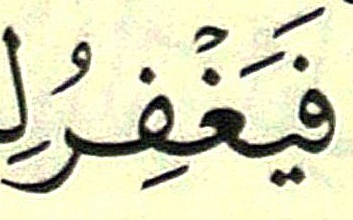 فَيَغْفِرُ لِ